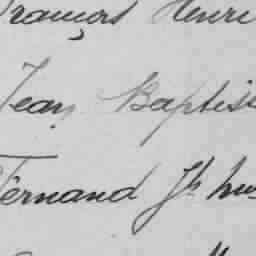 François Henri
Jean Baptis
Fernand Jh